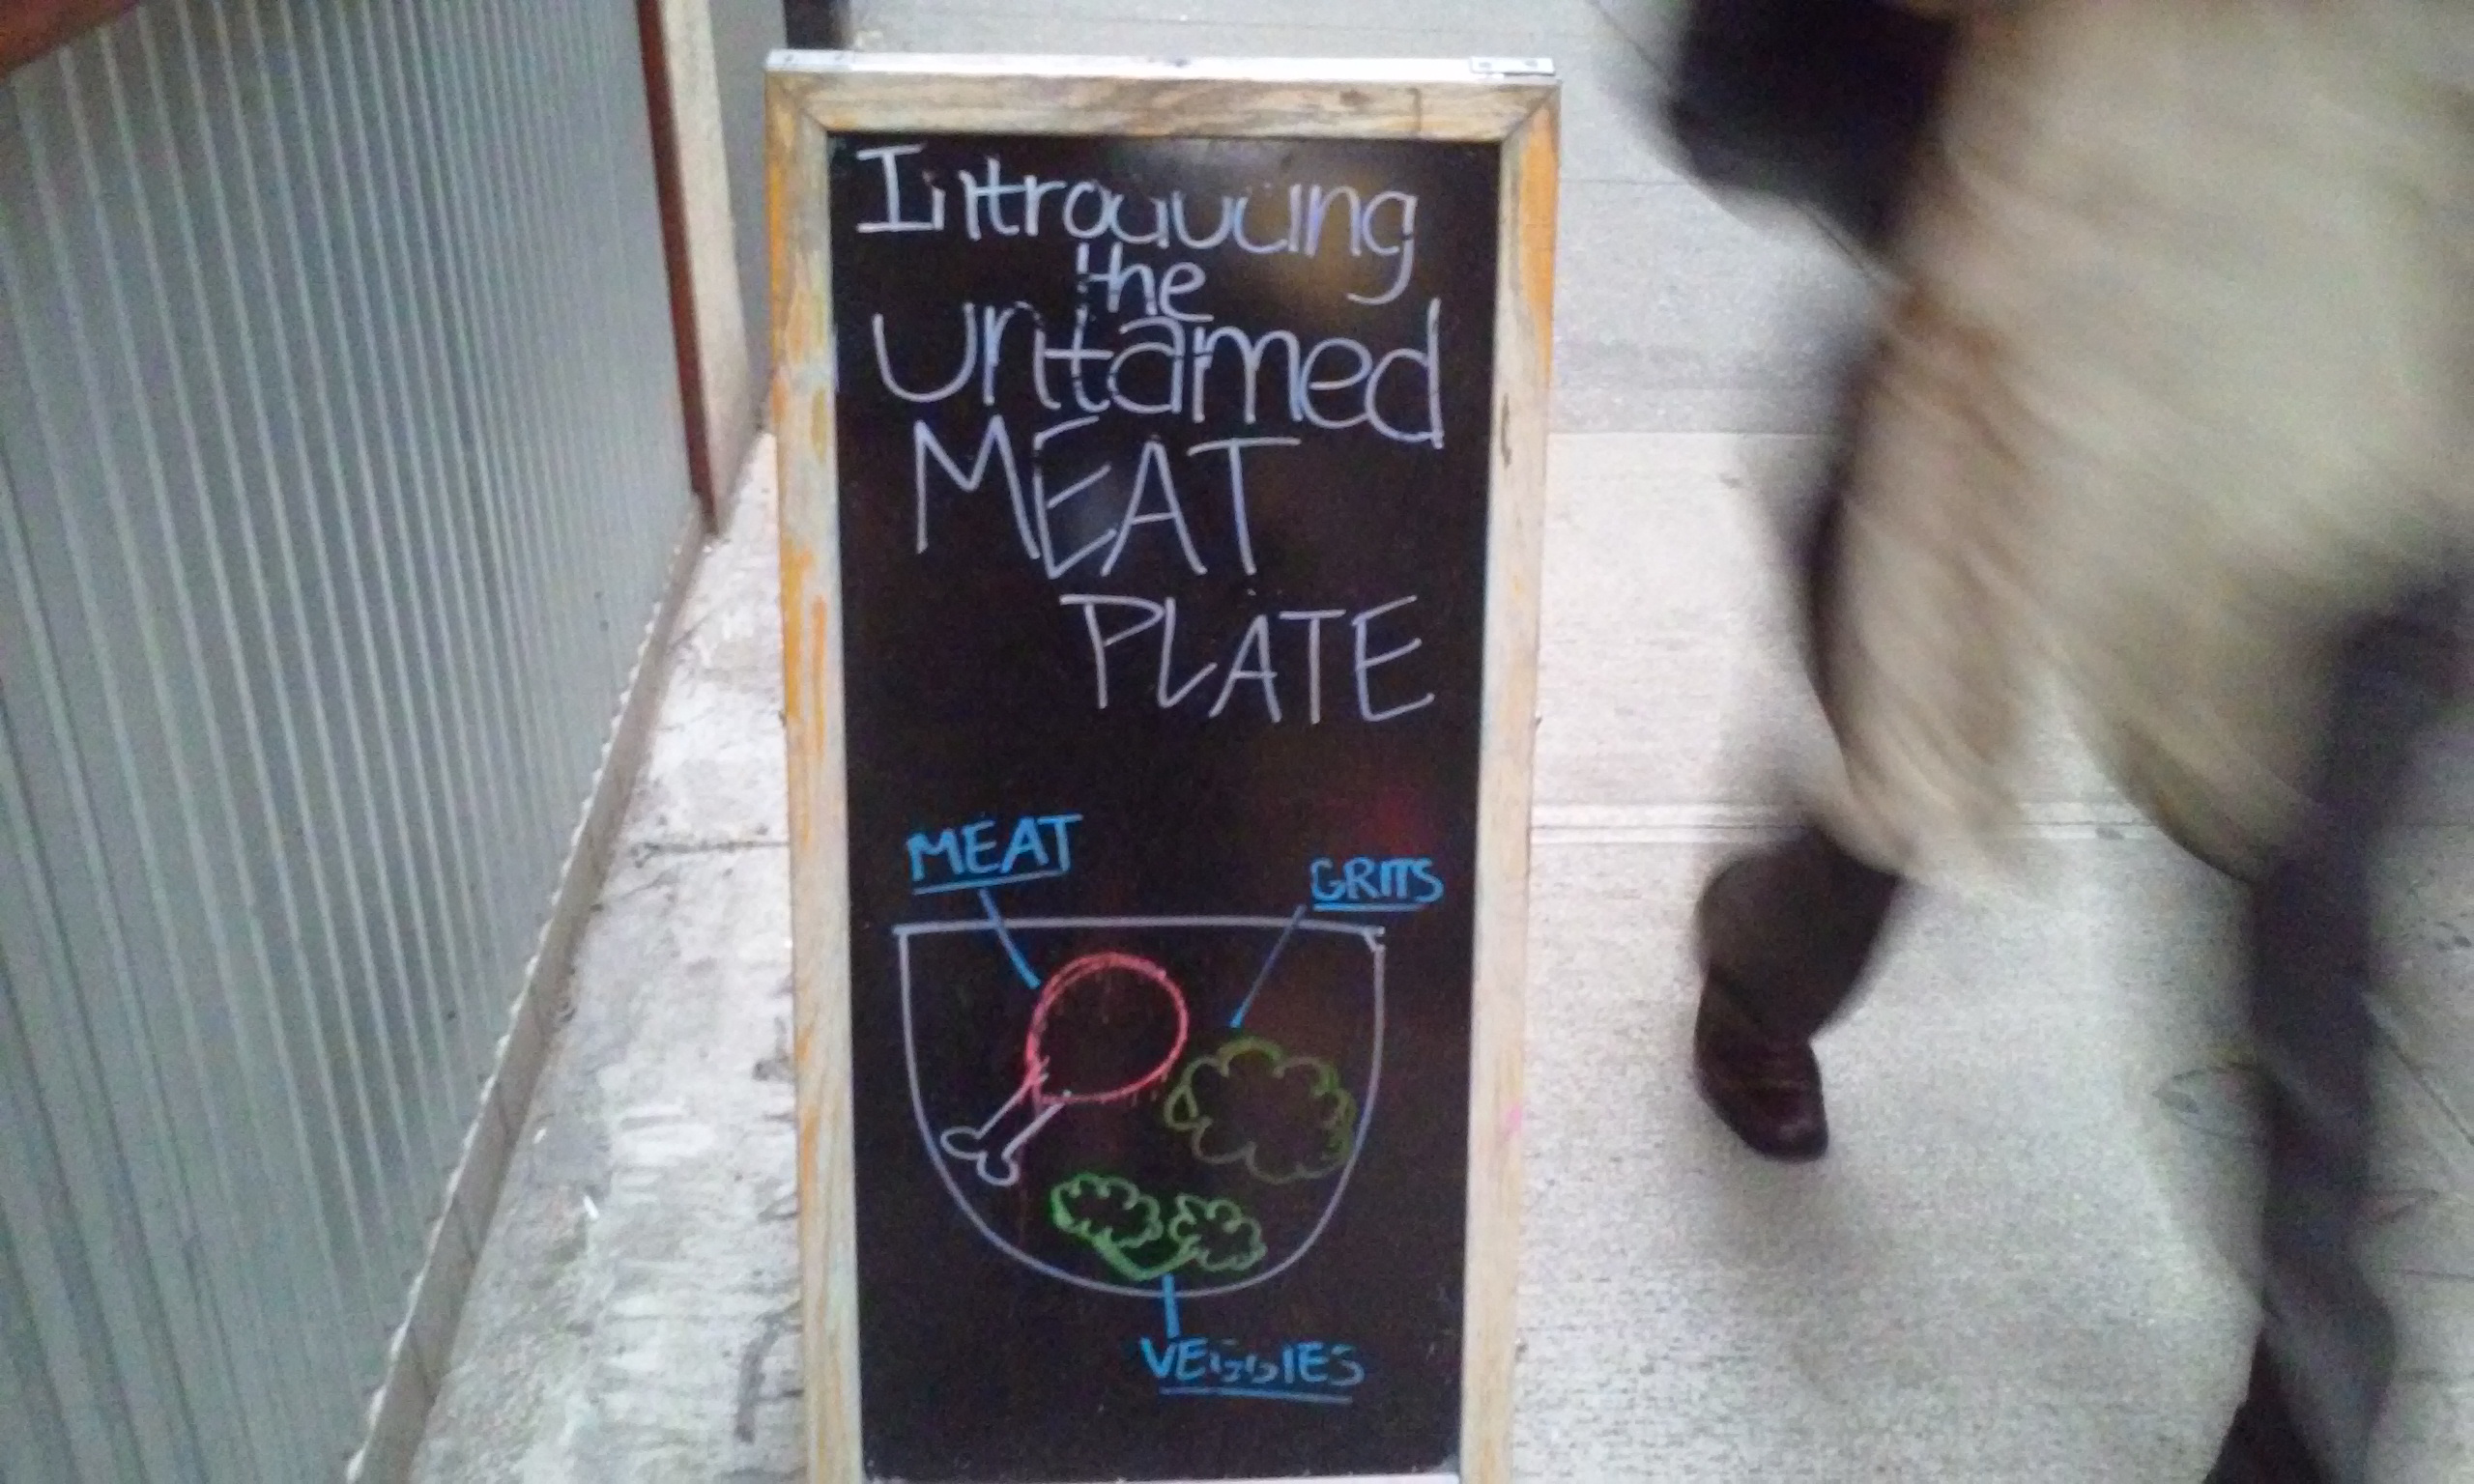 Introducing
the
untamed
MEAT
PLATE
MEAT
GRITS
VEGGIES